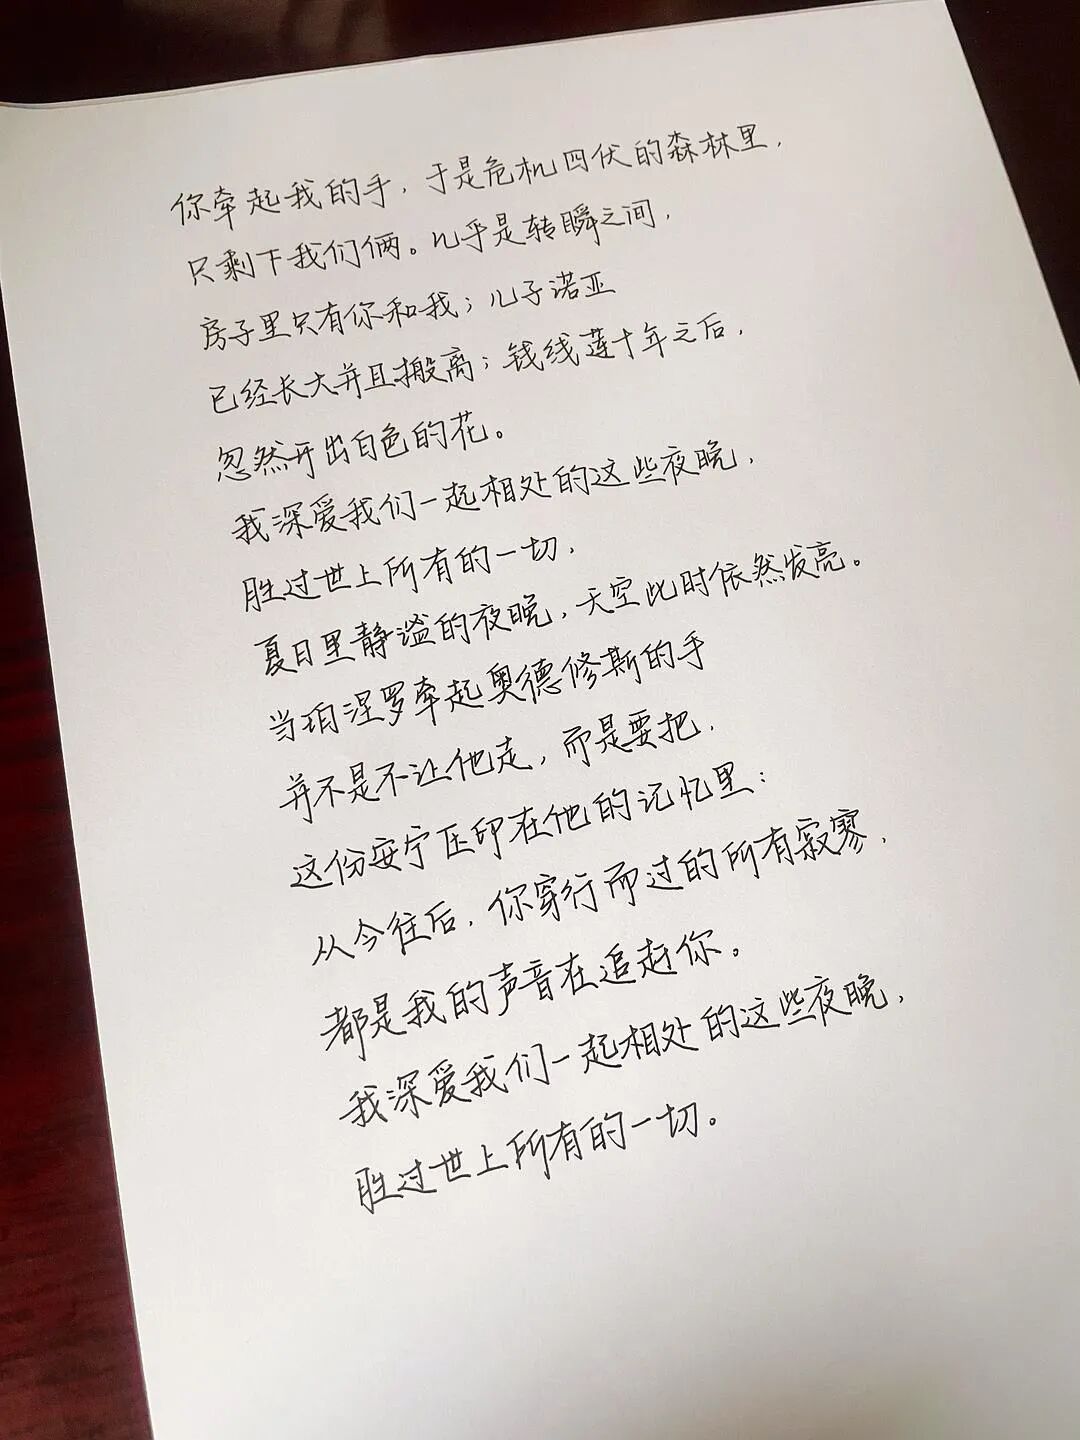 你牵起我的手，于是危机四伏的森林里，
只剩下我们俩。几乎是转瞬之间，
房子里只有你和我；儿子诺亚
已经长大并且搬离；钱线莲十年之后，
忽然开出白色的花。
我深爱我们一起相处的这些夜晚，
胜过世上所有的一切，
夏日里静谧的夜晚，天空此时依然发亮。
当珀涅罗牵起奥德修斯的手
并不是不让他走，而是要把，
这份安宁压印在他的记忆里：
从今往后，你穿行而过的所有寂寥，
都是我的声音在追赶你。
我深爱我们一起相处的这些夜晚，
胜过世上所有的一切。